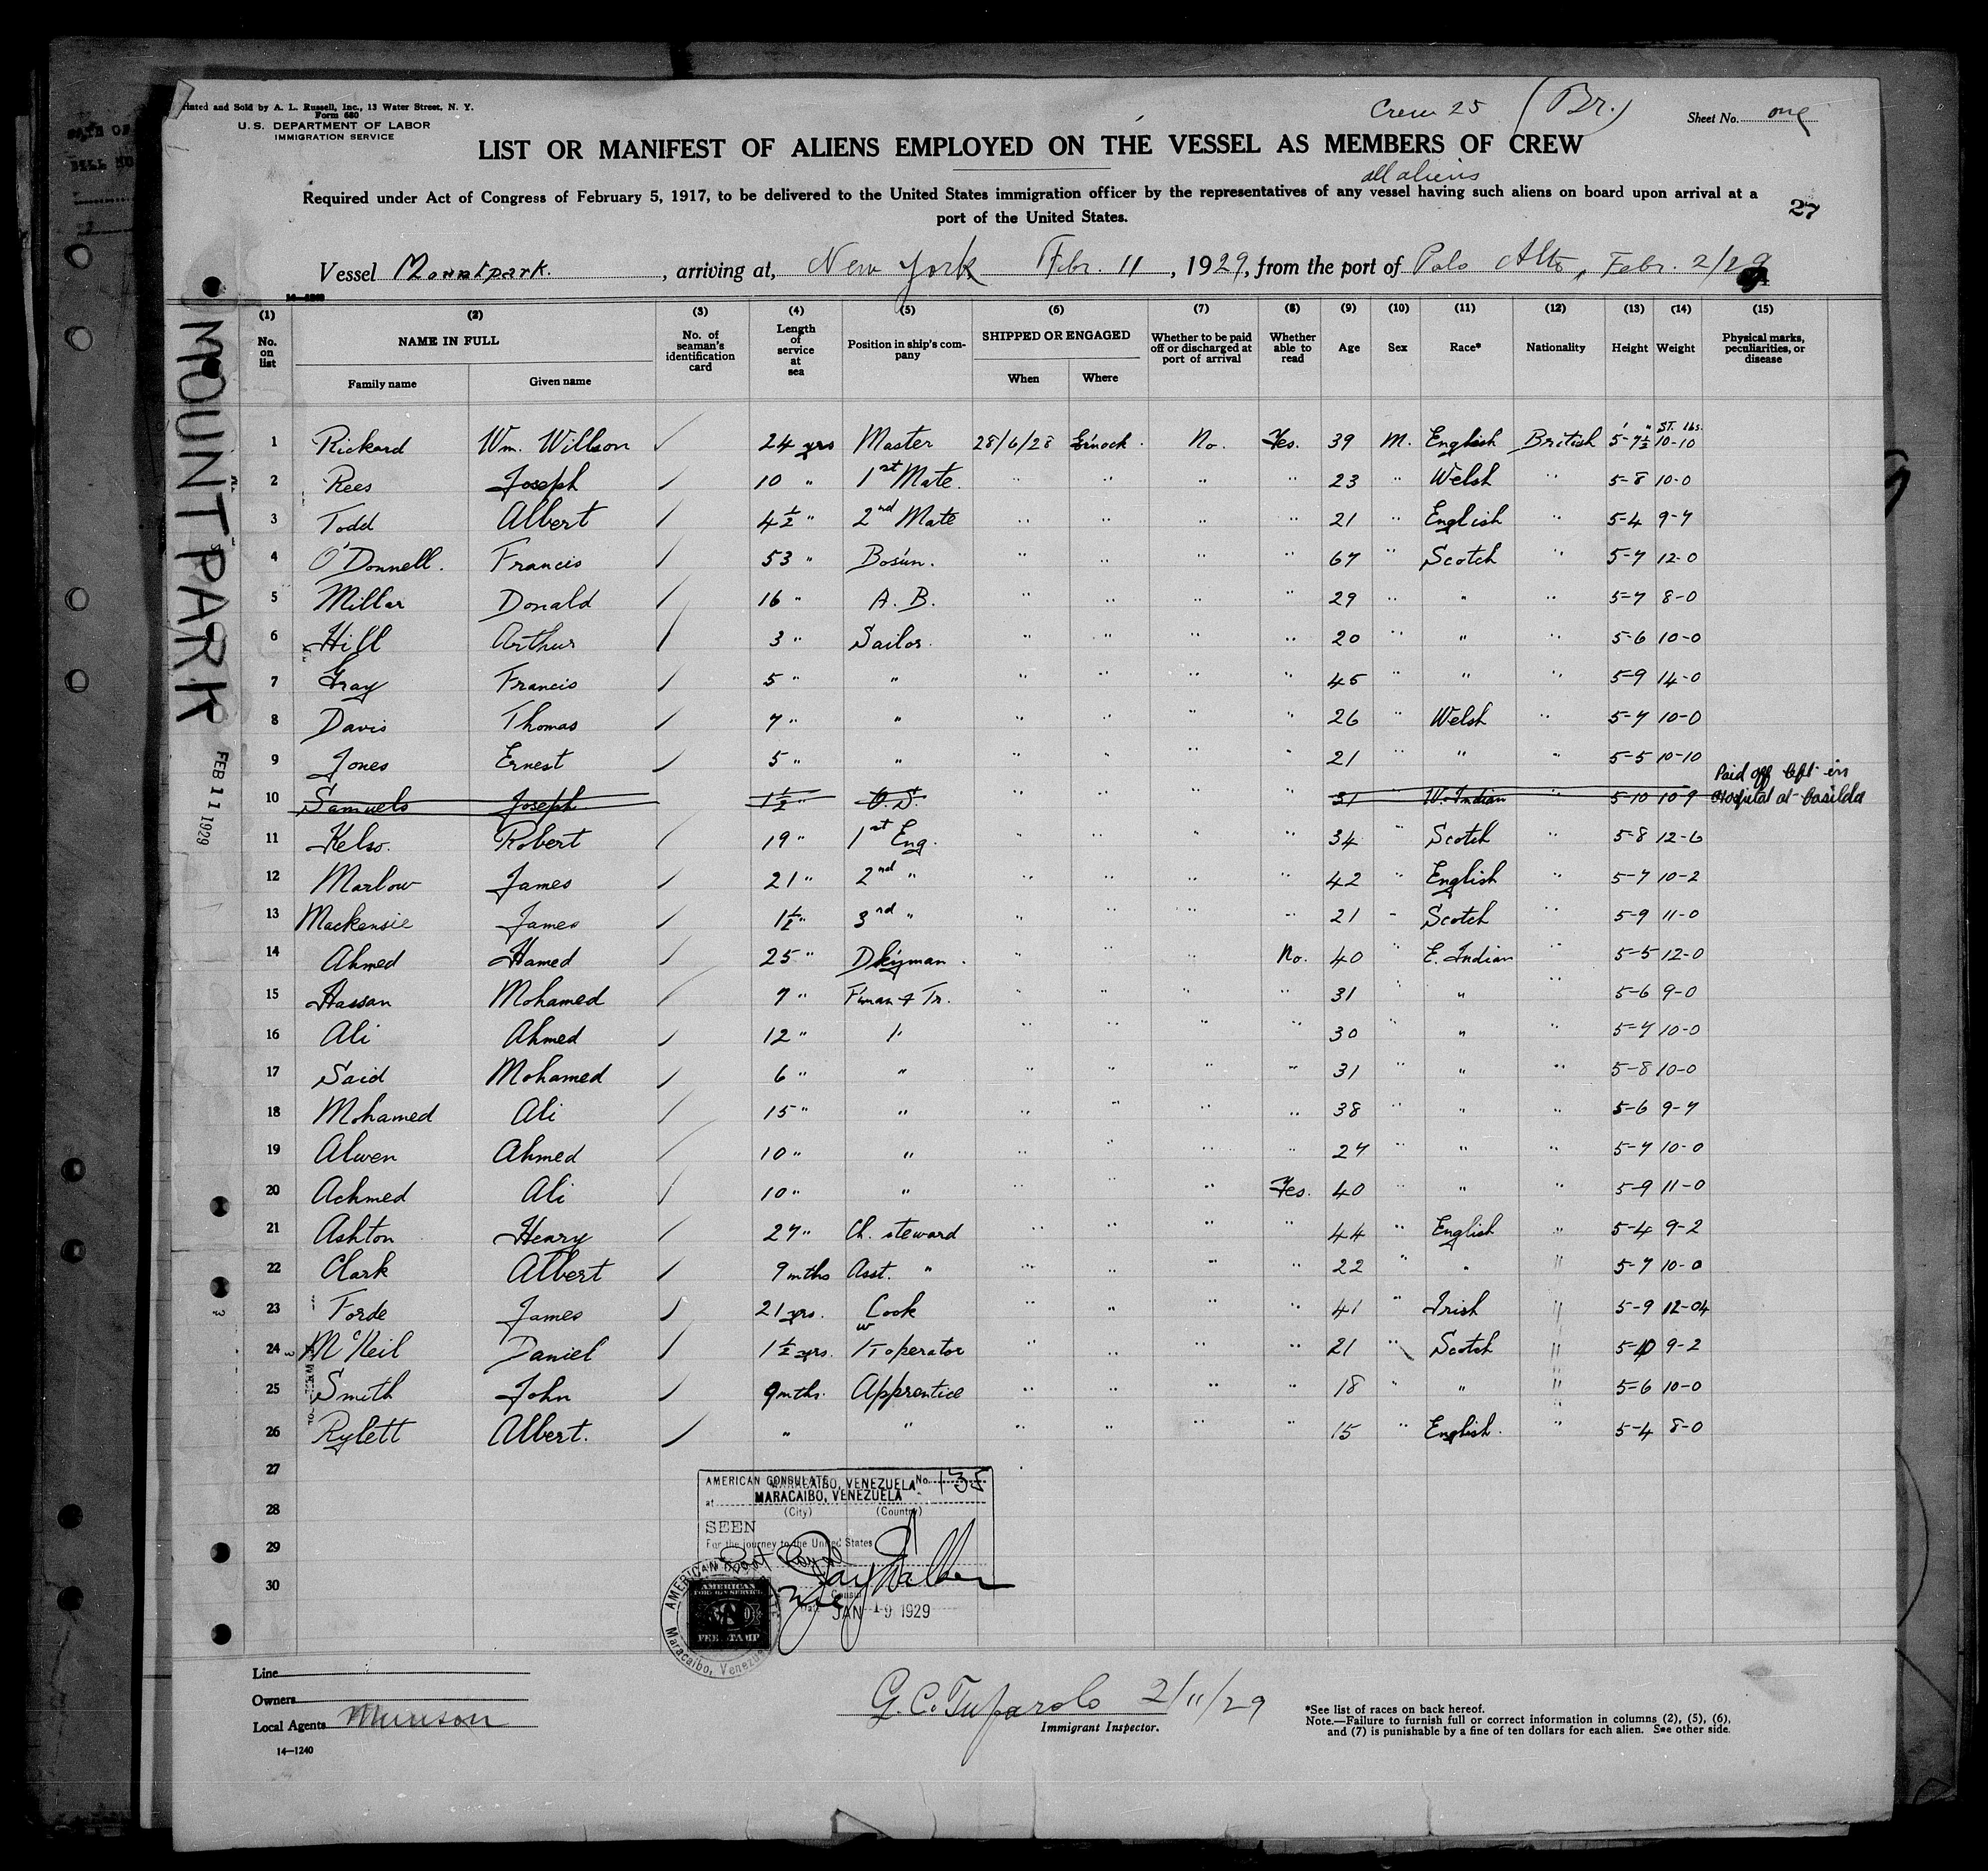 Printed and Sold by A. L. Russell, Inc., 13 Water Street, N. Y.
Form 680
U. S. DEPARTMENT OF LABOR
IMMIGRATION SERVICE
Crew 25 (Br.)
Sheet No. one
LIST OR MANIFEST OF ALIENS EMPLOYED ON THE VESSEL AS MEMBERS OF CREW
all aliens
Required under Act of Congress of February 5, 1917, to be delivered to the United States immigration officer by the representatives of any vessel having such aliens on board upon arrival at a
port of the United States.
27
Vessel Mountpark. , arriving at, New York Febr. 11 , 1929, from the port of Palo Alto, Febr. 2/29
14-1240
MOUNTPARK
FEB 11 1929
(1) No. on list
(2) NAME IN FULL Family name Given name
(3) No. of seaman's identification card
(4) Length of service at sea
(5) Position in ship's company
(6) SHIPPED OR ENGAGED When Where
(7) Whether to be paid off or discharged at port of arrival
(8) Whether able to read
(9) Age
(10) Sex
(11) Race*
(12) Nationality
(13) Height
(14) Weight
(15) Physical marks, peculiarities, or disease
1 Rickard Wm. Willson ✓ 24 yrs Master 28/6/28 No. Yes. 39 M. English British 5'-7½" 10-10 ST. lbs.
2 Rees Joseph ✓ 10 " 1st Mate. " " " " 23 " Welsh " 5-8 10-0
3 Todd Albert ✓ 4½ " 2nd Mate " " " " 21 " English " 5-4 9-7
4 O'Donnell. Francis ✓ 53 " Bosun. " " " " 67 " Scotch " 5-7 12-0
5 Millar Donald ✓ 16 " A. B. " " " " 29 " " " 5-7 8-0
6 Hill Arthur ✓ 3 " Sailor. " " " " 20 " " " 5-6 10-0
7 Gray Francis ✓ 5 " " " " " " 45 " " " 5-9 14-0
8 Davis Thomas ✓ 7 " " " " " " 26 " Welsh " 5-7 10-0
9 Jones Ernest ✓ 5 " " " " " " 21 " " " 5-5 10-10
10 Samuels Joseph 1½ " O.S. 31 W. Indian 5-10 10-9 Paid off left in Hospital at Casilda
11 Kelso. Robert ✓ 19 " 1st Eng. " " " " 34 " Scotch " 5-8 12-6
12 Marlow James ✓ 21 " 2nd " " " " " 42 " English " 5-7 10-2
13 Mackensie James ✓ 1½ " 3rd " " " " " 21 " Scotch " 5-9 11-0
14 Ahmed Hamed ✓ 25 " Dkyman. " " " No. 40 " E. Indian " 5-5 12-0
15 Hassan Mohamed ✓ 7 " F'man & Tr. " " " " 31 " " " 5-6 9-0
16 Ali Ahmed ✓ 12 " " " " " " 30 " " " 5-7 10-0
17 Said Mohamed ✓ 6 " " " " " " 31 " " " 5-8 10-0
18 Mohamed Ali ✓ 15 " " " " " " 38 " " " 5-6 9-7
19 Alwen Ahmed ✓ 10 " " " " " " 27 " " " 5-7 10-0
20 Achmed Ali ✓ 10 " " " " " Yes. 40 " " " 5-9 11-0
21 Ashton Henry ✓ 27 " Ch. steward " " " " 44 " English " 5-4 9-2
22 Clark Albert ✓ 9 mths Asst. " " " " " 22 " " " 5-7 10-0
23 Forde James ✓ 21 yrs. Cook " " " " 41 " Irish " 5-9 12-04
24 McNeil Daniel ✓ 1½ yrs. W/T operator " " " " 21 " Scotch " 5-10 9-2
25 Smith John ✓ 9 mths. Apprentice " " " " 18 " " " 5-6 10-0
26 Rylett Albert. ✓ " " " " " " 15 " English. " 5-4 8-0
27
28
29
30
AMERICAN CONSULATE No. 135
MARACAIBO, VENEZUELA
at MARACAIBO, VENEZUELA
(City) (Country)
SEEN
For the journey to the United States
Consul
Date JAN 19 1929
AMERICAN
Maracaibo, Venezuela
AMERICAN
FOREIGN SERVICE
FEE STAMP
Line
Owners
Local Agents Munson
14-1240
G. C. Tufarolo 2/11/29
Immigrant Inspector.
*See list of races on back hereof.
Note.—Failure to furnish full or correct information in columns (2), (5), (6),
and (7) is punishable by a fine of ten dollars for each alien. See other side.